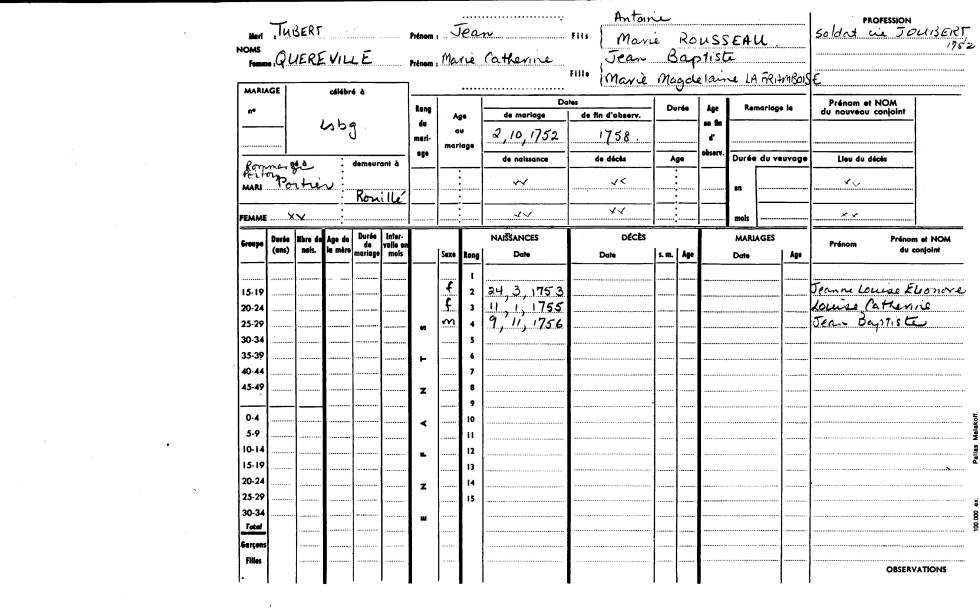 Mari TUBERT Prénom : Jean Fils { Antoine
Marie ROUSSEAU
PROFESSION
soldat cie JOUBERT
1752
NOMS
Femme QUEREVILLE Prénom : Marie Catherine Fille { Jean Baptiste
Marie Magdelaine LA FRAMBOISE
MARIAGE célébré à
n°
Lsbg
Rang du mariage
Age au mariage
Dates
de mariage de fin d'observ.
2, 10, 1752 1758.
de naissance de décès
Durée
Age
Age en fin d'observ.
Remariage le
Durée du veuvage
en
mois
Prénom et NOM
du nouveau conjoint
Lieu du décès
né à demeurant à
MARI Poitiers Rouillé
FEMME xx
Groupe Durée (ans) Nbre de nais. Age de la mère Durée de mariage Intervalle en mois
ENFANTS
Sexe Rang
NAISSANCES DÉCÈS MARIAGES
Date Date s. m. Age Date Age Prénom Prénom et NOM du conjoint
1
15-19 f 2 24, 3, 1753 Jeanne Louise Eléonore
20-24 f 3 11, 1, 1755 Louise Catherine
25-29 m 4 9, 11, 1756 Jean Baptiste
30-34 5
35-39 6
40-44 7
45-49 8
9
0-4 10
5-9 11
10-14 12
15-19 13
20-24 14
25-29 15
30-34
Total
Garçons
Filles
OBSERVATIONS
100.000 ex. Pallas Malakoff.